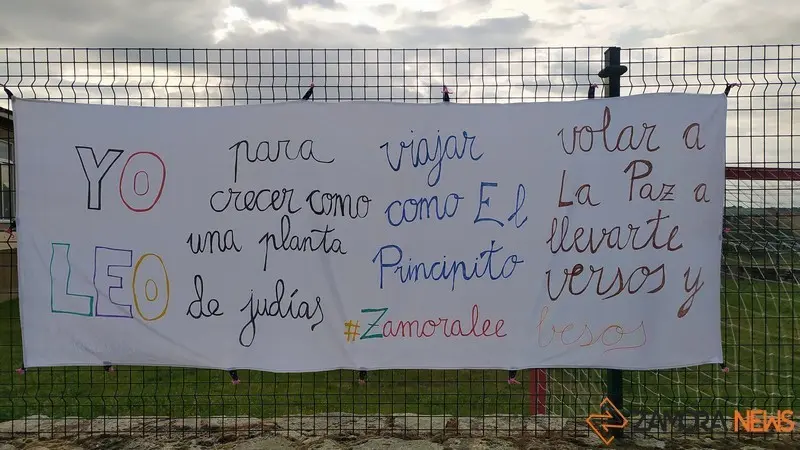 YO
LEO
para
crecer como
una planta
de judías
viajar
como El
Principito
#Zamoralee
volar a
La Paz a
llevarte
versos y
besos
ZAMORA NEWS